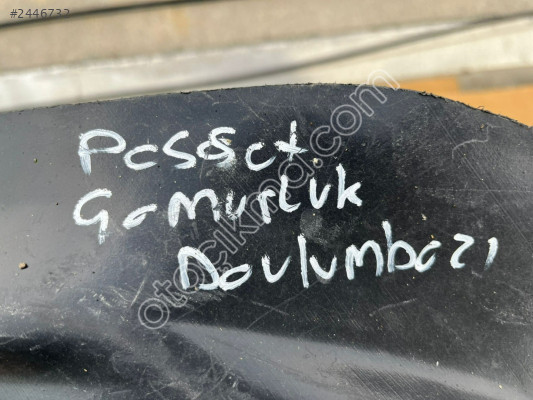 #2446732
Passat
Çamurluk
Davlumbazı
otocikma.com